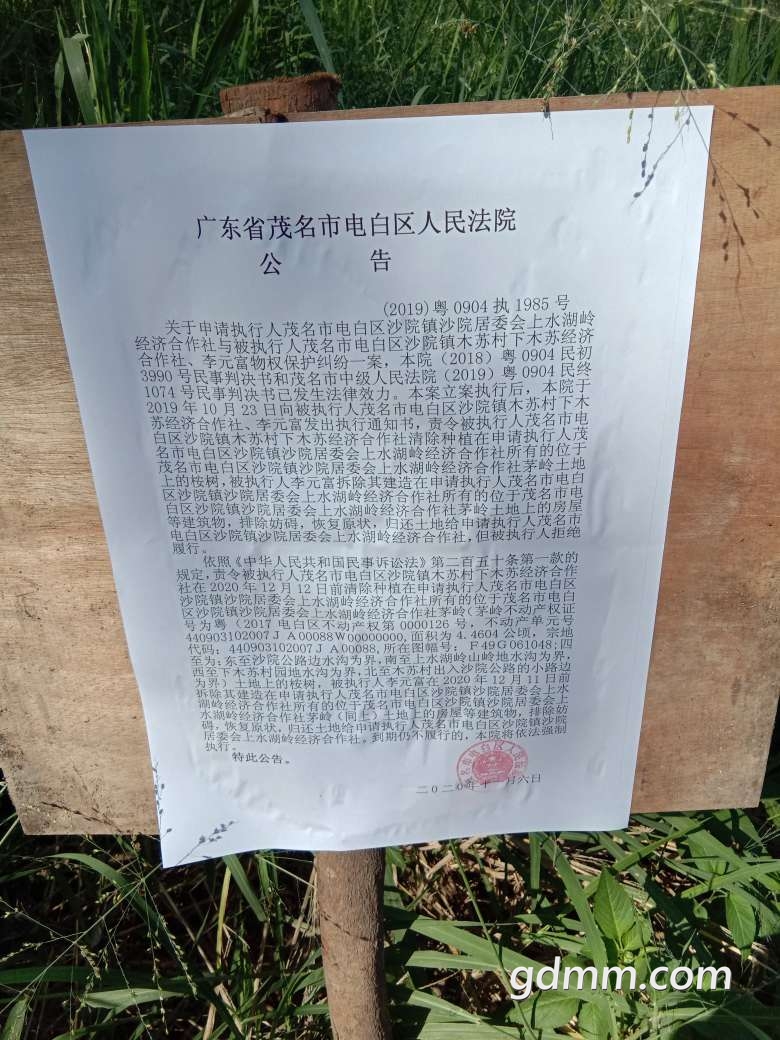 广东省茂名市电白区人民法院
公 告
(2019)粤 0904 执 1985 号
关于申请执行人茂名市电白区沙院镇沙院居委会上水湖岭
经济合作社与被执行人茂名市电白区沙院镇木苏村下木苏经济
合作社、李元富物权保护纠纷一案，本院（2018）粤 0904 民初
3990 号民事判决书和茂名市中级人民法院（2019）粤 09 民终
1074 号民事判决书已发生法律效力。本案立案执行后，本院于
2019 年 10 月 23 日向被执行人茂名市电白区沙院镇木苏村下木
苏经济合作社、李元富发出执行通知书，责令被执行人茂名市电
白区沙院镇木苏村下木苏经济合作社清除种植在申请执行人茂
名市电白区沙院镇沙院居委会上水湖岭经济合作社所有的位于
茂名市电白区沙院镇沙院居委会上水湖岭经济合作社茅岭土地
上的桉树，被执行人李元富拆除其建造在申请执行人茂名市电
白区沙院镇沙院居委会上水湖岭经济合作社所有的位于茂名市电
白区沙院镇沙院居委会上水湖岭经济合作社茅岭土地上的房屋
等建筑物，排除妨碍，恢复原状，归还土地给申请执行人茂名市
电白区沙院镇沙院居委会上水湖岭经济合作社，但被执行人拒绝
履行。
依照《中华人民共和国民事诉讼法》第二百五十条第一款的
规定，责令被执行人茂名市电白区沙院镇木苏村下木苏经济合作
社在 2020 年 12 月 12 日前清除种植在申请执行人茂名市电白区
沙院镇沙院居委会上水湖岭经济合作社所有的位于茂名市电白
区沙院镇沙院居委会上水湖岭经济合作社茅岭（茅岭不动产权证
号为粤（2017 电白区不动产权第 0000126 号，不动产单元号
440903102007JA00088W00000000,面积为 4.4604 公顷，宗地
代码：440903102007JA00088,所在图幅号：F49G061048;四
至为:东至沙院公路边水沟为界,南至上水湖岭山岭地水沟为界,
西至下木苏村园地水沟为界,北至木苏村出入沙院公路的小路边
为界）土地上的桉树，被执行人李元富在 2020 年 12 月 11 日前
拆除其建造在申请执行人茂名市电白区沙院镇沙院居委会上水
湖岭经济合作社所有的位于茂名市电白区沙院镇沙院居委会上
水湖岭经济合作社茅岭（同上）土地上的房屋等建筑物，排除妨
碍，恢复原状，归还土地给申请执行人茂名市电白区沙院镇沙院
居委会上水湖岭经济合作社。到期仍不履行的，本院将依法强制
执行。
特此公告。
二〇二〇年十一月六日
gdmm.com